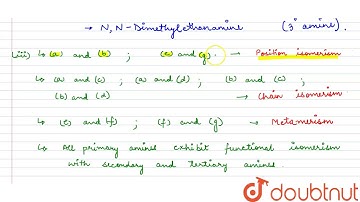 → N, N - Dimethylethanamine (3° amine).
(iii) ↳ (a) and (b) ; (e) and (g). → Position isomerism
↳ (a) and (c) ; (a) and (d) ; (b) and (c) ;
(b) and (d) → Chain isomerism
↳ (e) and (f) ; (f) and (g) → Metamerism
↳ All primary amines exhibit functional isomerism
with secondary and tertiary amines.
doubtnut